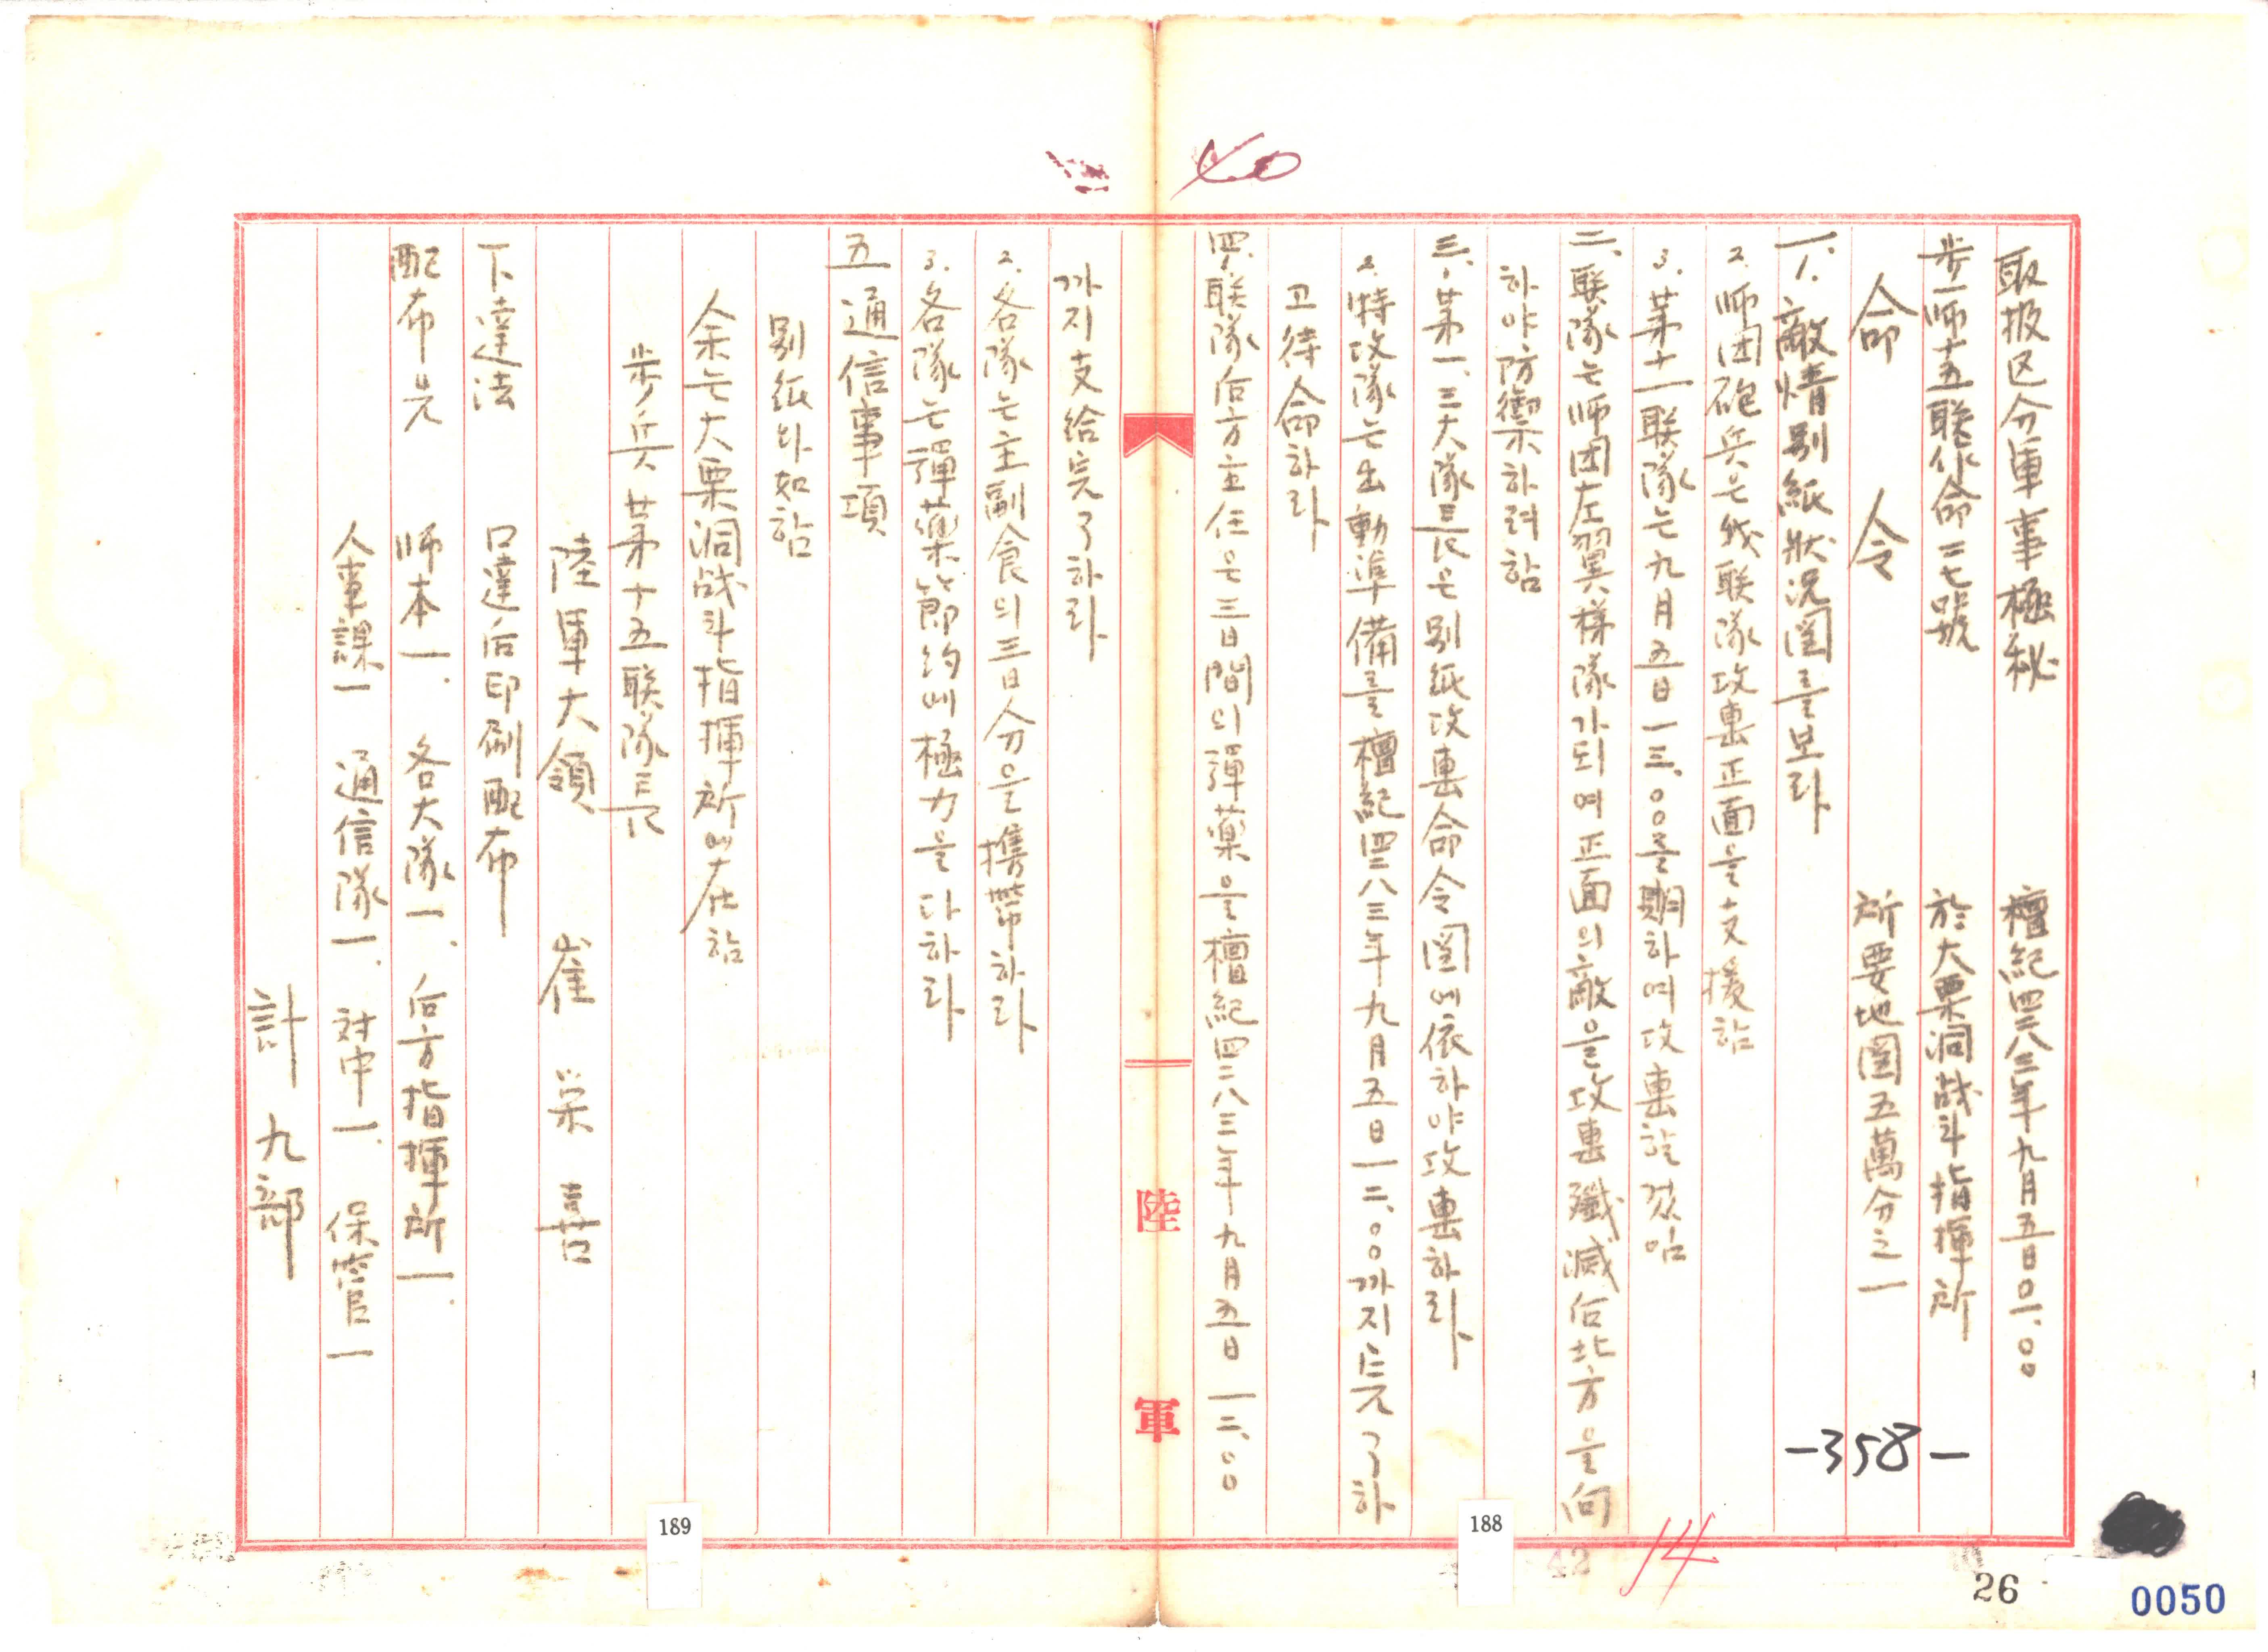 取扱区分軍事極秘　檀紀四二八三年九月五日〇一.〇〇
步一師十五聯作命二七號　於大栗洞战斗指揮所
命令　所要地図五萬分之一
一、1. 敵情別紙狀況図를보라
2. 师团砲兵은我联隊攻軎正面을支援함
3. 苐十一联隊는九月五日一三.〇〇를期하여攻軎할것임
二、联隊는师团左翼梯隊가되여正面의敵을攻軎殲滅后北方을向
하야防禦하려함
三、苐一、三大隊長은別紙攻軎命令図에依하야攻軎하라
2. 特攻隊는出動準備를檀紀四二八三年九月五日一二.〇〇까지完了하
고待命하라
四、联隊后方主任은三日間의彈藥을檀紀四二八三年九月五日一二.〇〇
까지支給完了하라
2. 各隊는主副食의三日分을携帶하라
3. 各隊는彈藥節約에極力을다하라
五 通信事項
別紙와如함
余는大栗洞战斗指揮所에在함
步兵苐十五联隊長
陸軍大領 崔栄喜
下達法 口達后印刷配布
配布先 师本一. 各大隊一、后方指揮所一.
人事課一 通信隊一. 対中一. 保管一
計九部
陸軍
-358-
188
189
14
42
26
0050